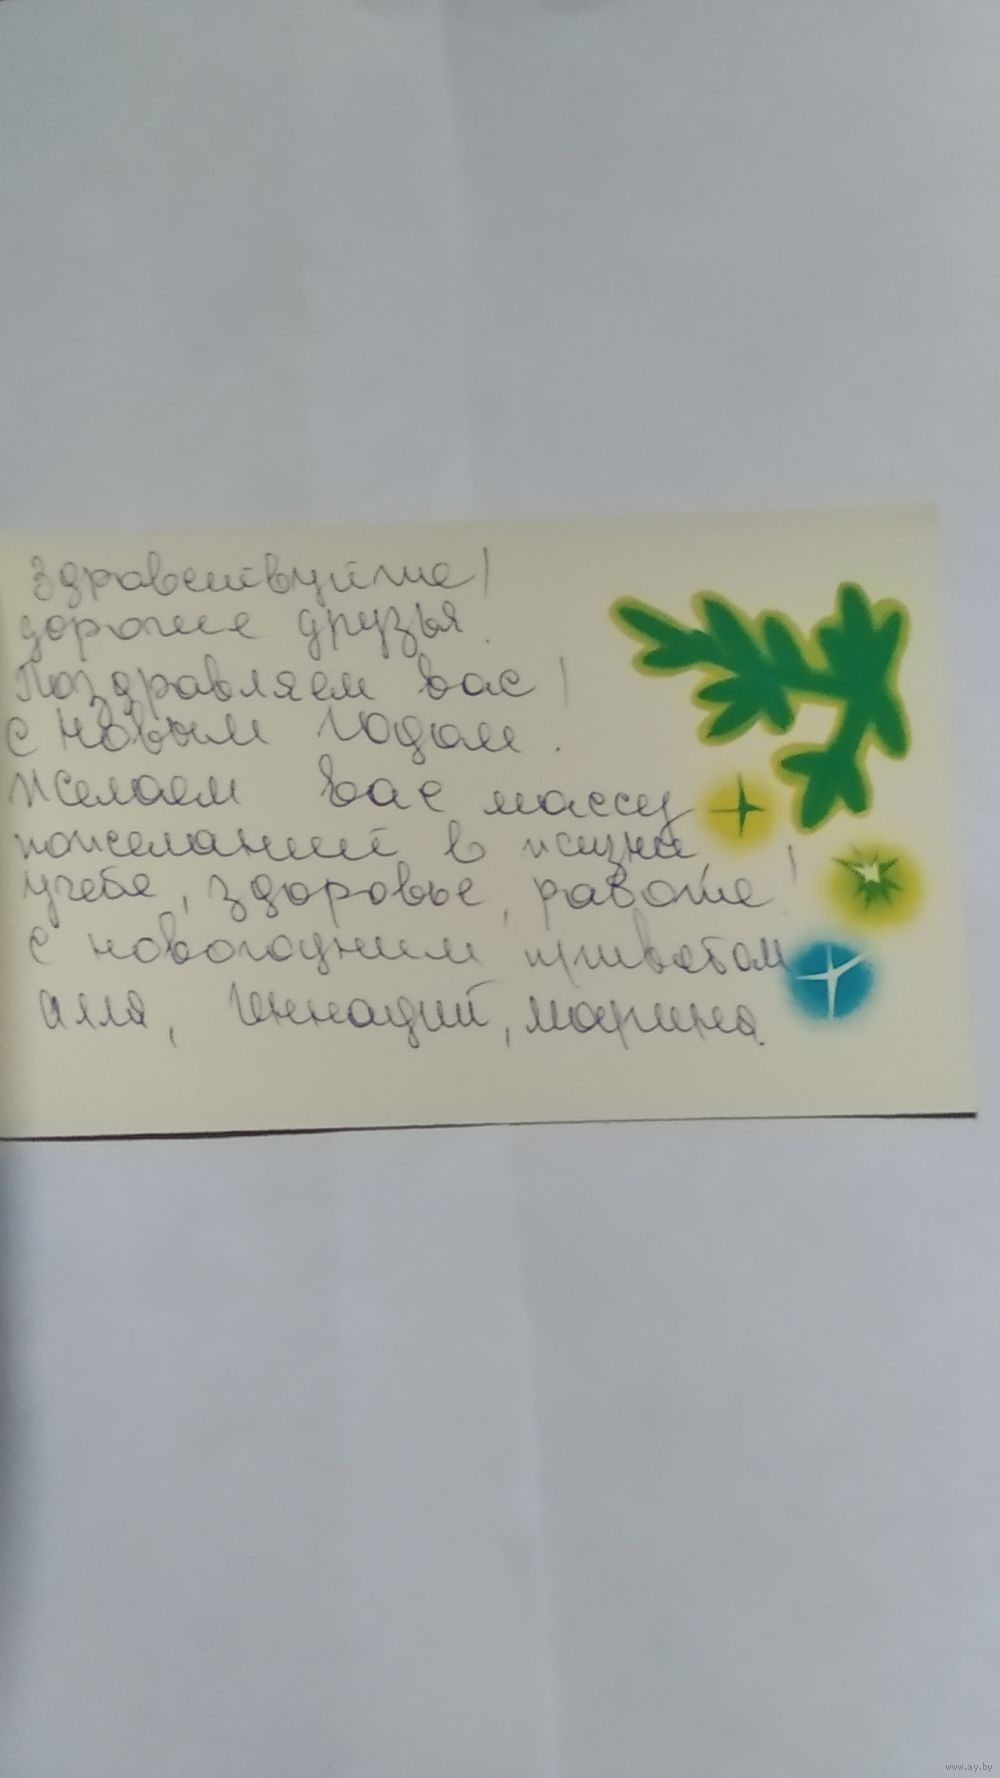 Здравствуйте!
дорогие друзья.
Поздравляем вас!
с Новым Годом.
Желаем вас массу
пожеланий в жизни,
учебе, здоровье, работе!
С новогодним приветом
Алла, Геннадий, Марина.
www.ay.by